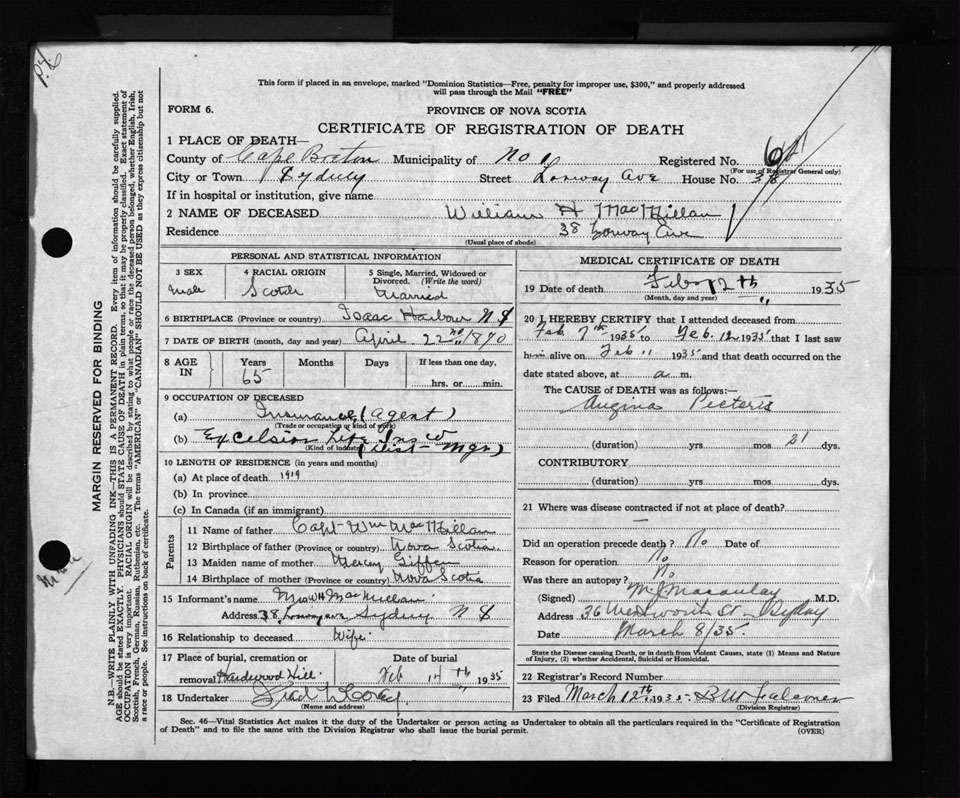 This form if placed in an envelope, marked "Dominion Statistics—Free, penalty for improper use, $300," and properly addressed
will pass through the Mail "FREE"
FORM 6.
PROVINCE OF NOVA SCOTIA
CERTIFICATE OF REGISTRATION OF DEATH
1 PLACE OF DEATH—
County of Cape Breton Municipality of No 1 Registered No.
(For use of Registrar General only)
City or Town Sydney Street Lorway Ave House No. 38
If in hospital or institution, give name
2 NAME OF DECEASED William H MacMillan
Residence 38 Lorway Ave
(Usual place of abode)
PERSONAL AND STATISTICAL INFORMATION
3 SEX
male
4 RACIAL ORIGIN
Scotch
5 Single, Married, Widowed or
Divorced. (Write the word)
Married
6 BIRTHPLACE (Province or country) Isaac Harbour N S
7 DATE OF BIRTH (month, day and year) April 22nd 1870
8 AGE
IN
Years Months Days If less than one day,
65
hrs. or min.
9 OCCUPATION OF DECEASED
(a) Insurance (Agent)
(Trade or occupation or kind of work)
(b) Excelsior Life Ins
(Kind of industry)
(Dist— Mgr)
10 LENGTH OF RESIDENCE (in years and months)
(a) At place of death 1919
(b) In province
(c) In Canada (if an immigrant)
Parents
11 Name of father Capt Wm MacMillan
12 Birthplace of father (Province or country) Nova Scotia
13 Maiden name of mother Mercy Giffen
14 Birthplace of mother (Province or country) Nova Scotia
15 Informant's name Mrs W H MacMillan
Address 38 Lorway ave Sydney N S
16 Relationship to deceased Wife
17 Place of burial, cremation or
removal Hardwood Hill
Date of burial
Feb 14th 1935
18 Undertaker
(Name and address)
MEDICAL CERTIFICATE OF DEATH
19 Date of death Feb 12th " 1935
(Month, day and year)
20 I HEREBY CERTIFY that I attended deceased from
Feb 7th 1935 to Feb. 12 1935 that I last saw
him alive on Feb 11 1935 and that death occurred on the
date stated above, at a m.
The CAUSE OF DEATH was as follows:—
Angina Pectoris
(duration) yrs mos 21 dys.
CONTRIBUTORY
(duration) yrs. mos. dys.
21 Where was disease contracted if not at place of death?
—
Did an operation precede death? No Date of
Reason for operation No
Was there an autopsy? No
(Signed) M. J. Macaulay M.D.
Address 36 Wentworth St Sydney
Date March 8/35.
State the Disease causing Death, or in death from Violent Causes, state (1) Means and Nature
of Injury, (2) whether Accidental, Suicidal or Homicidal.
22 Registrar's Record Number
23 Filed March 12th 1935 B W Falconer
(Division Registrar)
Sec. 46—Vital Statistics Act makes it the duty of the Undertaker or person acting as Undertaker to obtain all the particulars required in the "Certificate of Registration
of Death" and to file the same with the Division Registrar who shall issue the burial permit.
(OVER)
MARGIN RESERVED FOR BINDING
N.B.—WRITE PLAINLY WITH UNFADING INK—THIS IS A PERMANENT RECORD. Every item of information should be carefully supplied.
AGE should be stated EXACTLY. PHYSICIANS should STATE CAUSE OF DEATH in plain terms, so that it may be properly classified. Exact statement of
OCCUPATION is very important. RACIAL ORIGIN will be described by stating to what people or race the deceased person belonged, whether English, Irish,
Scottish, French, German, Russian, Ruthenian, etc. The terms "AMERICAN" or "CANADIAN" SHOULD NOT BE USED as they express citizenship but not
a race or people. See instructions on back of certificate.